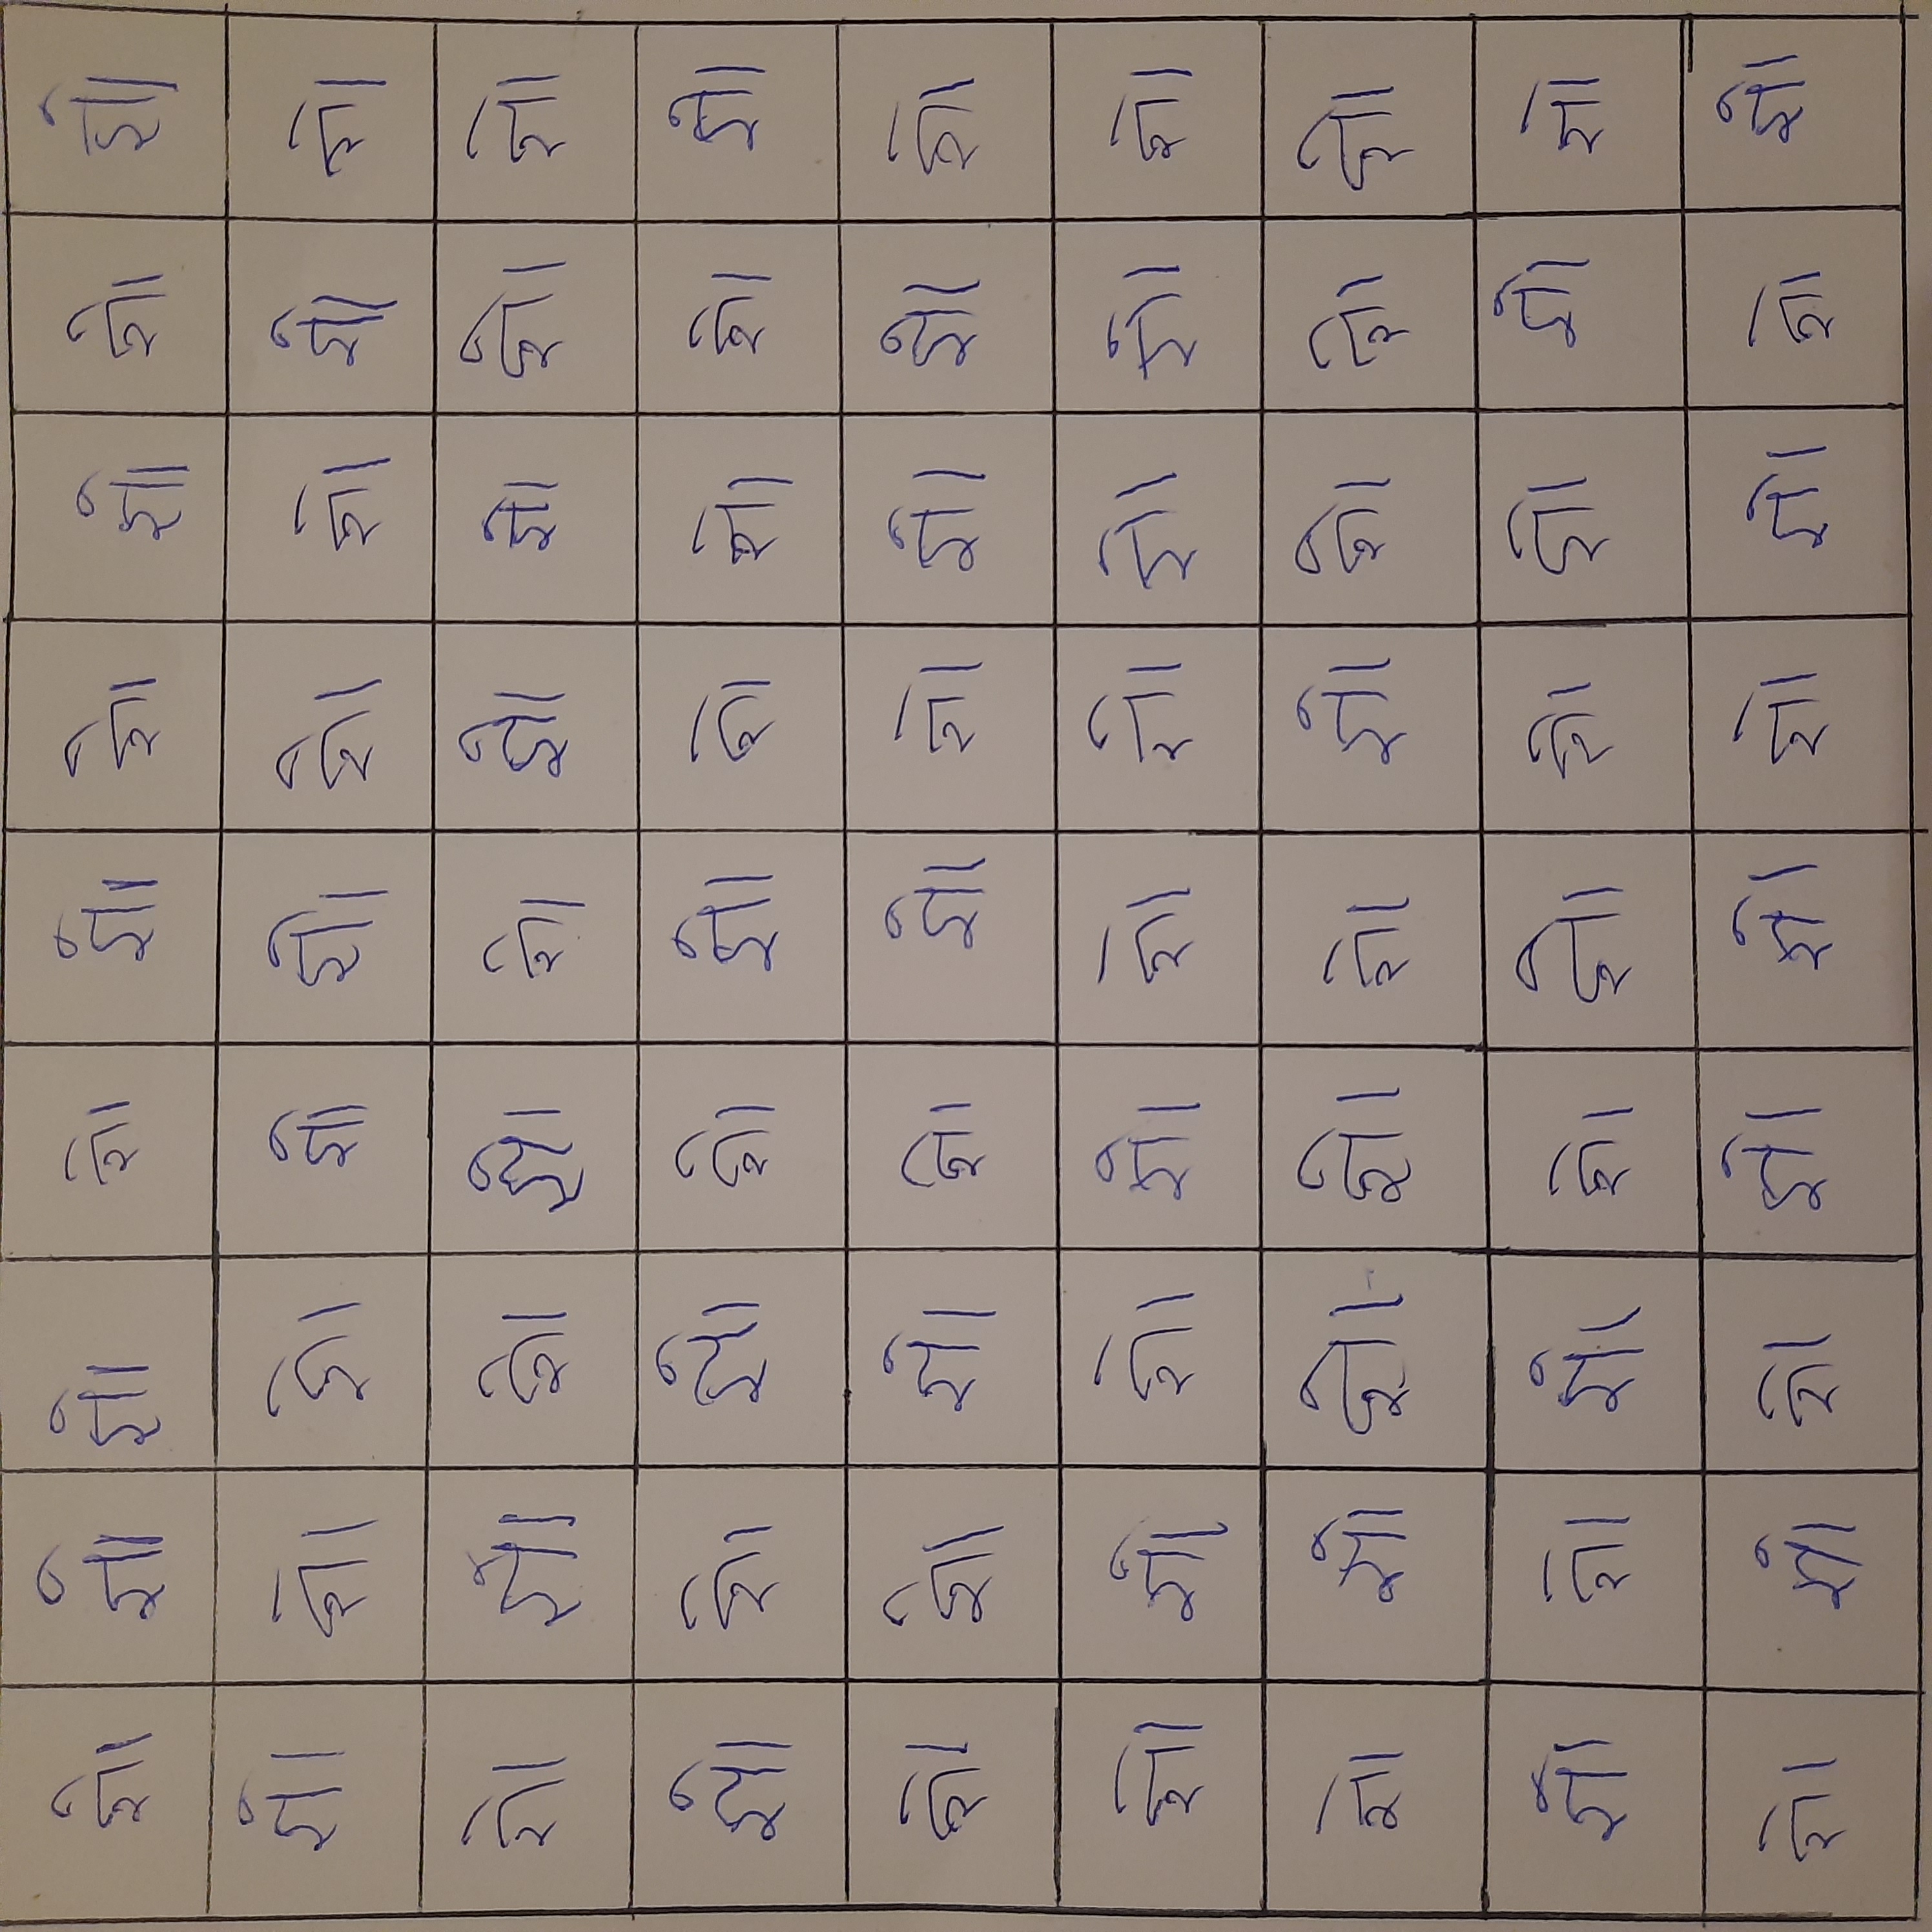 शो शो शो शो शो शो शो शो शो
शो शो शो शो शो शो शो शो शो
शो शो शो शो शो शो शो शो शो
शो शो शो शो शो शो शो शो शो
शो शो शो शो शो शो शो शो शो
शो शो शो शो शो शो शो शो शो
शो शो शो शो शो शो शो शो शो
शो शो शो शो शो शो शो शो शो
शो शो शो शो शो शो शो शो शो